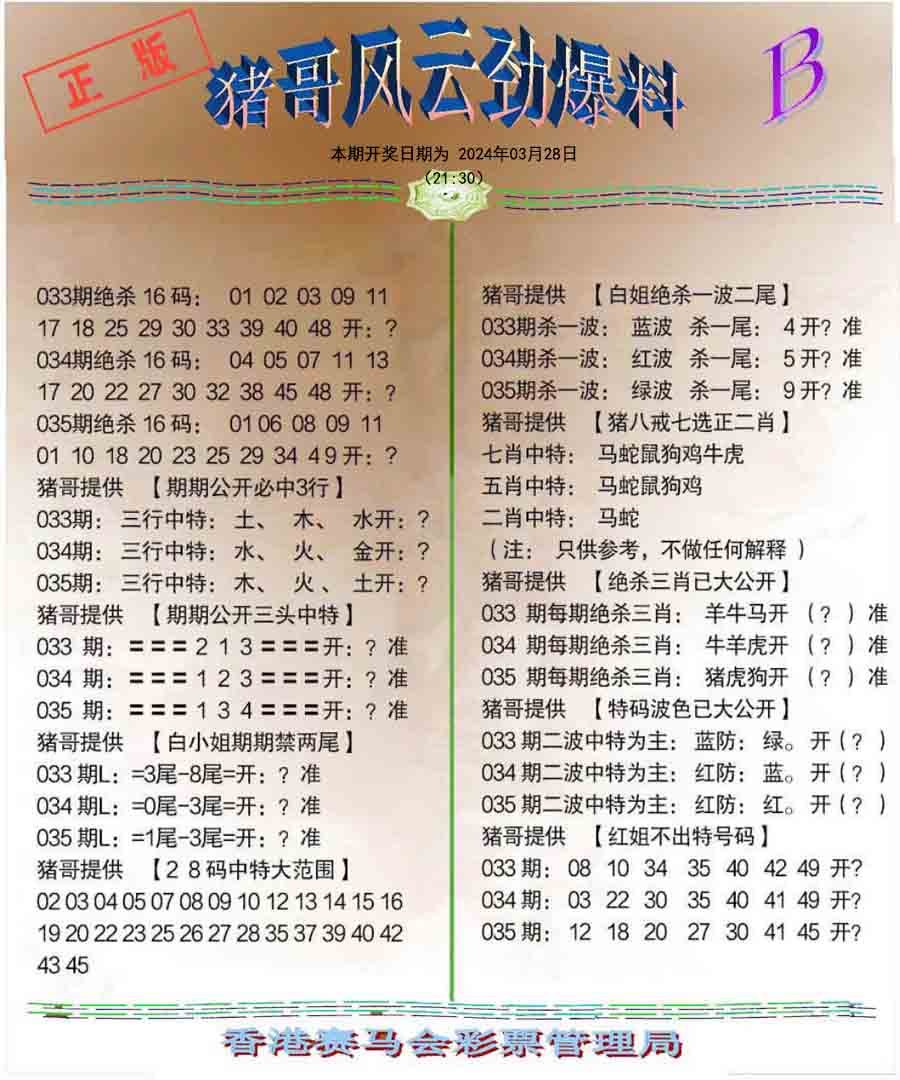 正版
猪哥风云劲爆料
B
本期开奖日期为 2024年03月28日
(21:30)
033期绝杀 16 码： 01 02 03 09 11
17 18 25 29 30 33 39 40 48 开：?
034期绝杀 16 码： 04 05 07 11 13
17 20 22 27 30 32 38 45 48 开：?
035期绝杀 16 码： 01 06 08 09 11
01 10 18 20 23 25 29 34 4 9 开：?
猪哥提供 【期期公开必中3行】
033期： 三行中特： 土、 木、 水开：?
034期： 三行中特： 水、 火、 金开：?
035期： 三行中特： 木、 火 、 土开：?
猪哥提供 【期期公开三头中特】
033 期：＝＝＝2 1 3＝＝＝开：? 准
034 期：＝＝＝1 2 3＝＝＝开：? 准
035 期：＝＝＝1 3 4＝＝＝开：? 准
猪哥提供 【白小姐期期禁两尾】
033 期L：=3尾-8尾=开：? 准
034 期L：=0尾-3尾=开：? 准
035 期L：=1尾-3尾=开：? 准
猪哥提供 【2 8 码中特大范围】
02 03 04 05 07 08 09 10 12 13 14 15 16
19 20 22 23 25 26 27 28 35 37 39 40 42
43 45
猪哥提供 【白姐绝杀一波二尾】
033期杀一波： 蓝波 杀一尾： 4 开? 准
034期杀一波： 红波 杀一尾： 5 开? 准
035期杀一波： 绿波 杀一尾： 9 开? 准
猪哥提供 【猪八戒七选正二肖】
七肖中特： 马蛇鼠狗鸡牛虎
五肖中特： 马蛇鼠狗鸡
二肖中特： 马蛇
（注： 只供参考，不做任何解释 ）
猪哥提供 【绝杀三肖已大公开】
033 期每期绝杀三肖： 羊牛马开 （? ）准
034 期每期绝杀三肖： 牛羊虎开 （? ）准
035 期每期绝杀三肖： 猪虎狗开 （? ）准
猪哥提供 【特码波色已大公开】
033 期二波中特为主：蓝防：绿。开（? ）
034 期二波中特为主：红防：蓝。开（? ）
035 期二波中特为主：红防：红。开（? ）
猪哥提供 【红姐不出特号码】
033 期： 08 10 34 35 40 42 49 开?
034 期： 03 22 30 35 40 41 49 开?
035 期： 12 18 20 27 30 41 45 开?
香港赛马会彩票管理局